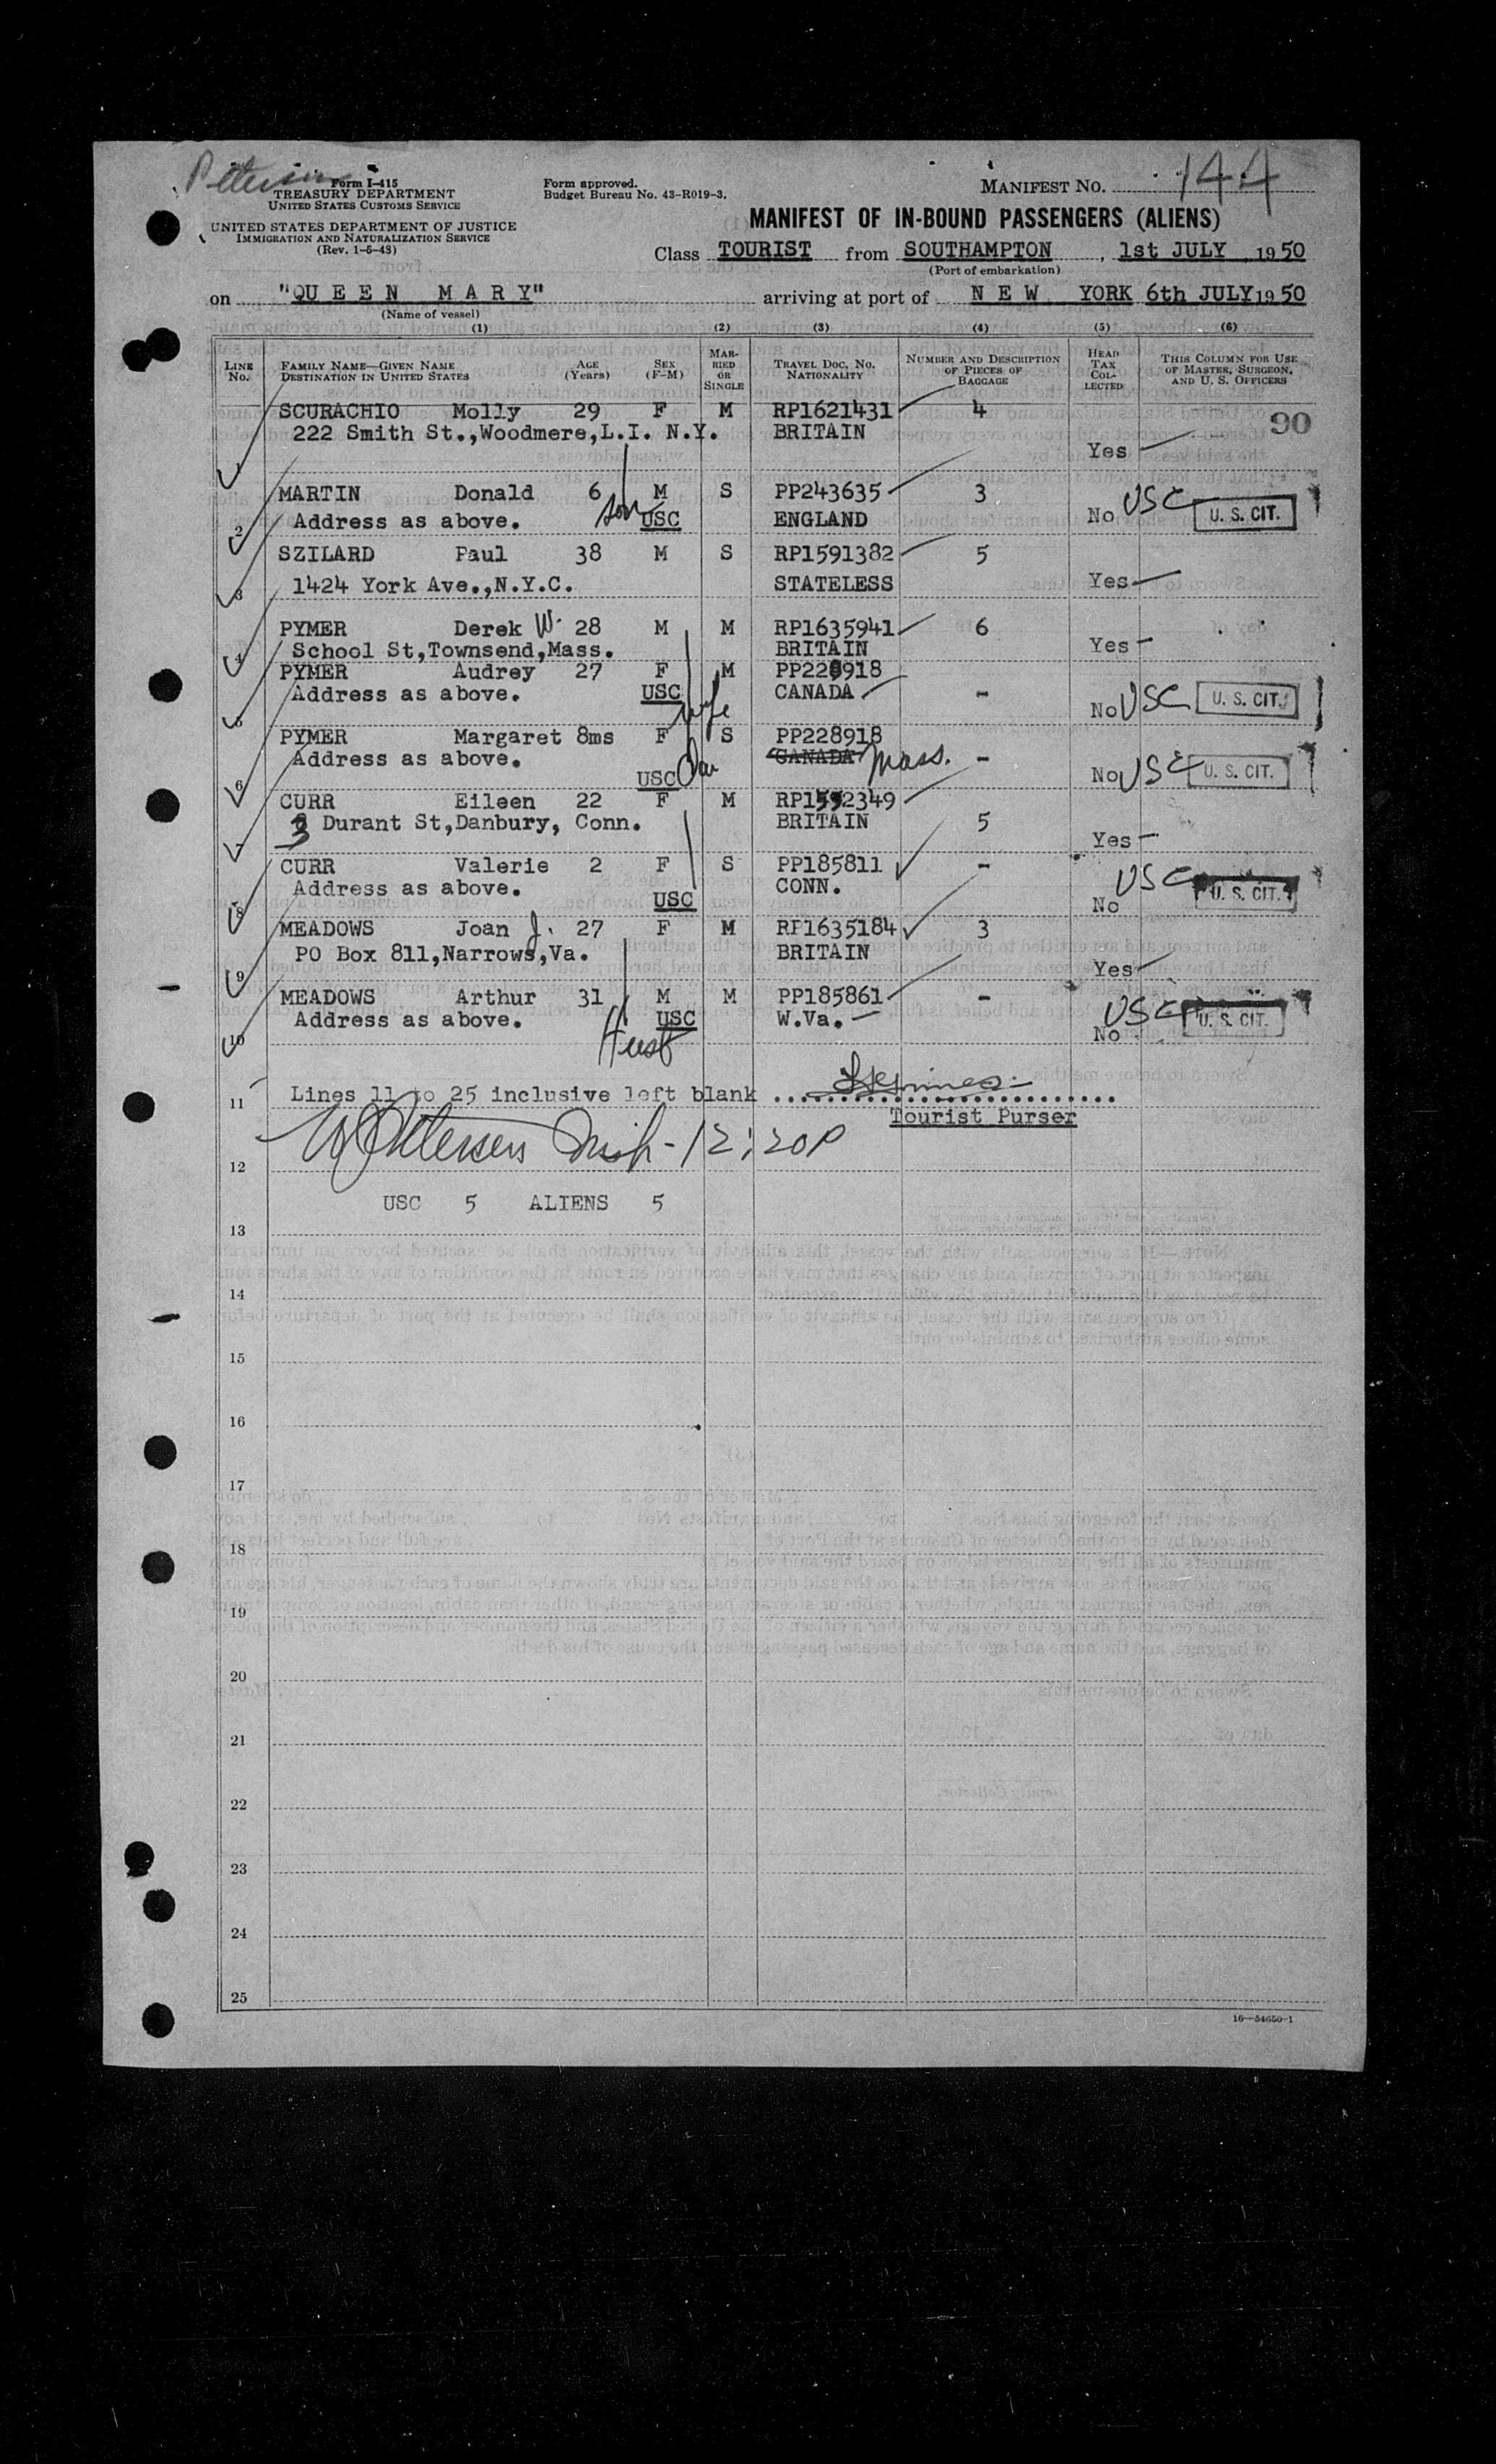 Petersen
Form I-415
TREASURY DEPARTMENT
UNITED STATES CUSTOMS SERVICE
UNITED STATES DEPARTMENT OF JUSTICE
IMMIGRATION AND NATURALIZATION SERVICE
(Rev. 1-5-48)
Form approved.
Budget Bureau No. 43-R019-3.
MANIFEST NO. 144
MANIFEST OF IN-BOUND PASSENGERS (ALIENS)
Class TOURIST from SOUTHAMPTON, 1st JULY, 1950
(Port of embarkation)
on "QUEEN MARY" arriving at port of NEW YORK 6th JULY 1950
(Name of vessel)
(1) (2) (3) (4) (5) (6)
LINE No. FAMILY NAME—GIVEN NAME DESTINATION IN UNITED STATES AGE (Years) SEX (F-M) MARRIED OR SINGLE TRAVEL DOC. NO. NATIONALITY NUMBER AND DESCRIPTION OF PIECES OF BAGGAGE HEAD TAX COLLECTED THIS COLUMN FOR USE OF MASTER, SURGEON, AND U. S. OFFICERS
SCURACHIO Molly 29 F M RP1621431 4 90
222 Smith St.,Woodmere,L.I. N.Y. BRITAIN
1 Yes
MARTIN Donald 6 M S PP243635 3
2 Address as above. son USC ENGLAND No USC U. S. CIT.
SZILARD Paul 38 M S RP1591382 5
3 1424 York Ave.,N.Y.C. STATELESS Yes
PYMER Derek W. 28 M M RP1635941 6
4 School St,Townsend,Mass. BRITAIN Yes
PYMER Audrey 27 F M PP228918
5 Address as above. USC wife CANADA - No USC U. S. CIT.
PYMER Margaret 8ms F S PP228918
6 Address as above. USC Dau CANADA Mass. - No USC U. S. CIT.
CURR Eileen 22 F M RP1552349
7 3 Durant St,Danbury, Conn. BRITAIN 5 Yes
CURR Valerie 2 F S PP185811 -
8 Address as above. USC CONN. No USC U. S. CIT.
MEADOWS Joan J. 27 F M RP1635184 3
9 PO Box 811,Narrows,Va. BRITAIN Yes
MEADOWS Arthur 31 M M PP185861 -
10 Address as above. Husb USC W.Va. No USC U. S. CIT.
11 Lines 11 to 25 inclusive left blank
Tourist Purser
12 W Petersen Insp- 12:20P
USC 5 ALIENS 5
13
14
15
16
17
18
19
20
21
22
23
24
25
16—54650-1